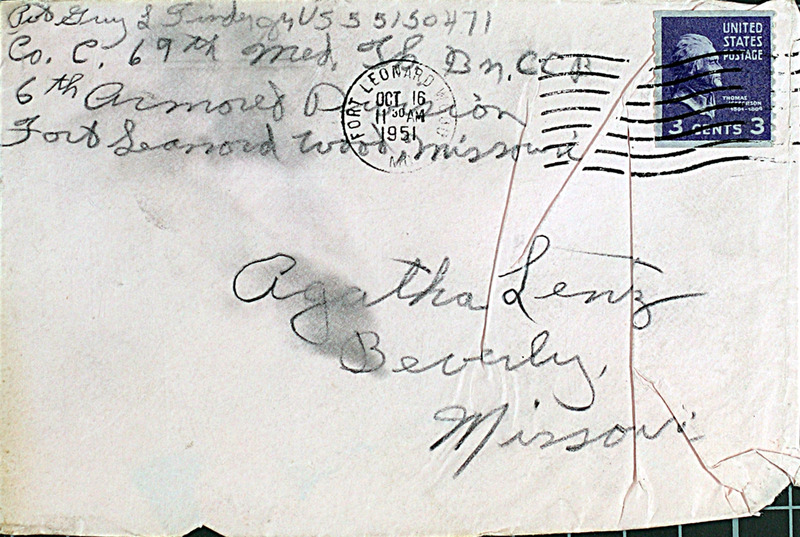 Pvt Guy L US 55150471
Co. C. 69th Med. Tk Bn. CCB
6th Armored Division
Fort Leanord Wood, Missouri
FORT LEONARD WOOD
OCT 16
11 30 AM
1951
MO
UNITED
STATES
POSTAGE
THOMAS
JEFFERSON
1801-1809
3 CENTS 3
Agatha Lenz
Beverly,
Missouri